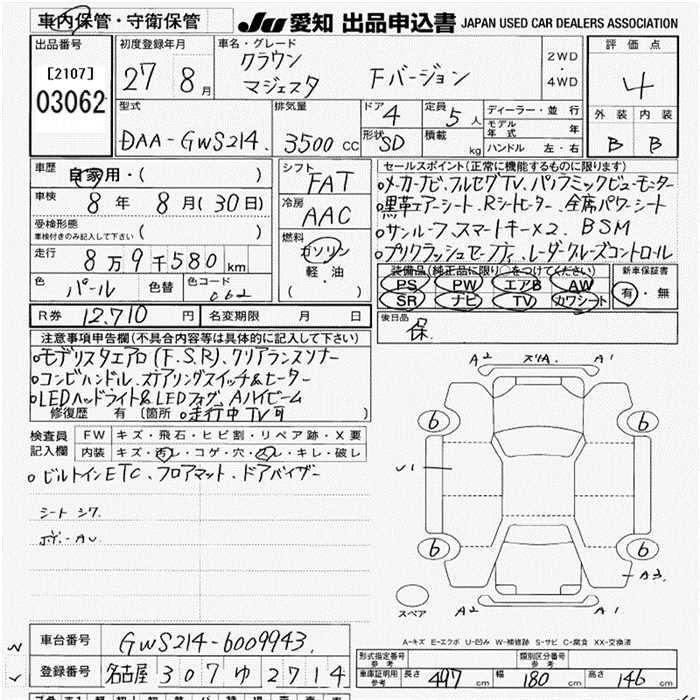 車内保管・守衛保管 JU 愛知 出品申込書 JAPAN USED CAR DEALERS ASSOCIATION
出品番号 [2107] 03062
初度登録年月 27 8月
車名・グレード クラウン マジェスタ Fバージョン
2WD・4WD
評価点 4
外装 内装 B B
型式 DAA-GWS214.
排気量 3500cc
ドア 4
形状 SD
定員 5人
積載 kg
ディーラー・並行
モデル年式 年
ハンドル 左・右
車歴 自家用・( )
車検 8年 8月(30日)
受検形態 車検付きのみ記入して下さい ( )
走行 8万9千580km
色 パール 色替 色コード 062
シフト FAT
冷房 AAC
燃料 ガソリン 軽・油 ( ・ )
R券 12,710円 名変期限 月 日
セールスポイント(正常に機能するものに限ります)
oメーカーナビ.フルセグTV.パノラミックビューモニター
o黒革エアーシート.Rシートヒーター.全席パワーシート
oサンルーフ.スマートキー×2. BSM
oプリクラッシュセーフティ.レーダークルーズコントロール
装備品(純正品に限り○をつけてください) 新車保証書
PS PW エアB AW 有・無
SR ナビ TV カワシート
後日品 保.
注意事項申告欄(不具合内容等は具体的に記入して下さい)
oモデリスタエアロ(F.S.R).クリアランスソナー
oコンビハンドル.ステアリングスイッチ&ヒーター
oLEDヘッドライト&LEDフォグ.Aハイビーム
修復歴 有 〔箇所 o走行中TV可 〕
検査員記入欄
FW キズ・飛石・ヒビ割・リペア跡・X要
内装 キズ・汚レ・コゲ・穴・スレ・キレ・破レ
oビルトインETC.フロアマット.ドアバイザー
シート シワ
ボデーAU
A2 スリA. A1
6 6
U1
6 6
A3
スペア A2 A1
A-キズ E-エクボ U-凹み W-補修跡 S-サビ C-腐食 XX-交換済
車台番号 GWS214-6009943.
登録番号 名古屋 307 ゆ 2714
形式指定番号 参考 類別区分番号 参考
車庫証明用 参考 長さ 497cm 幅 180cm 高さ 146cm